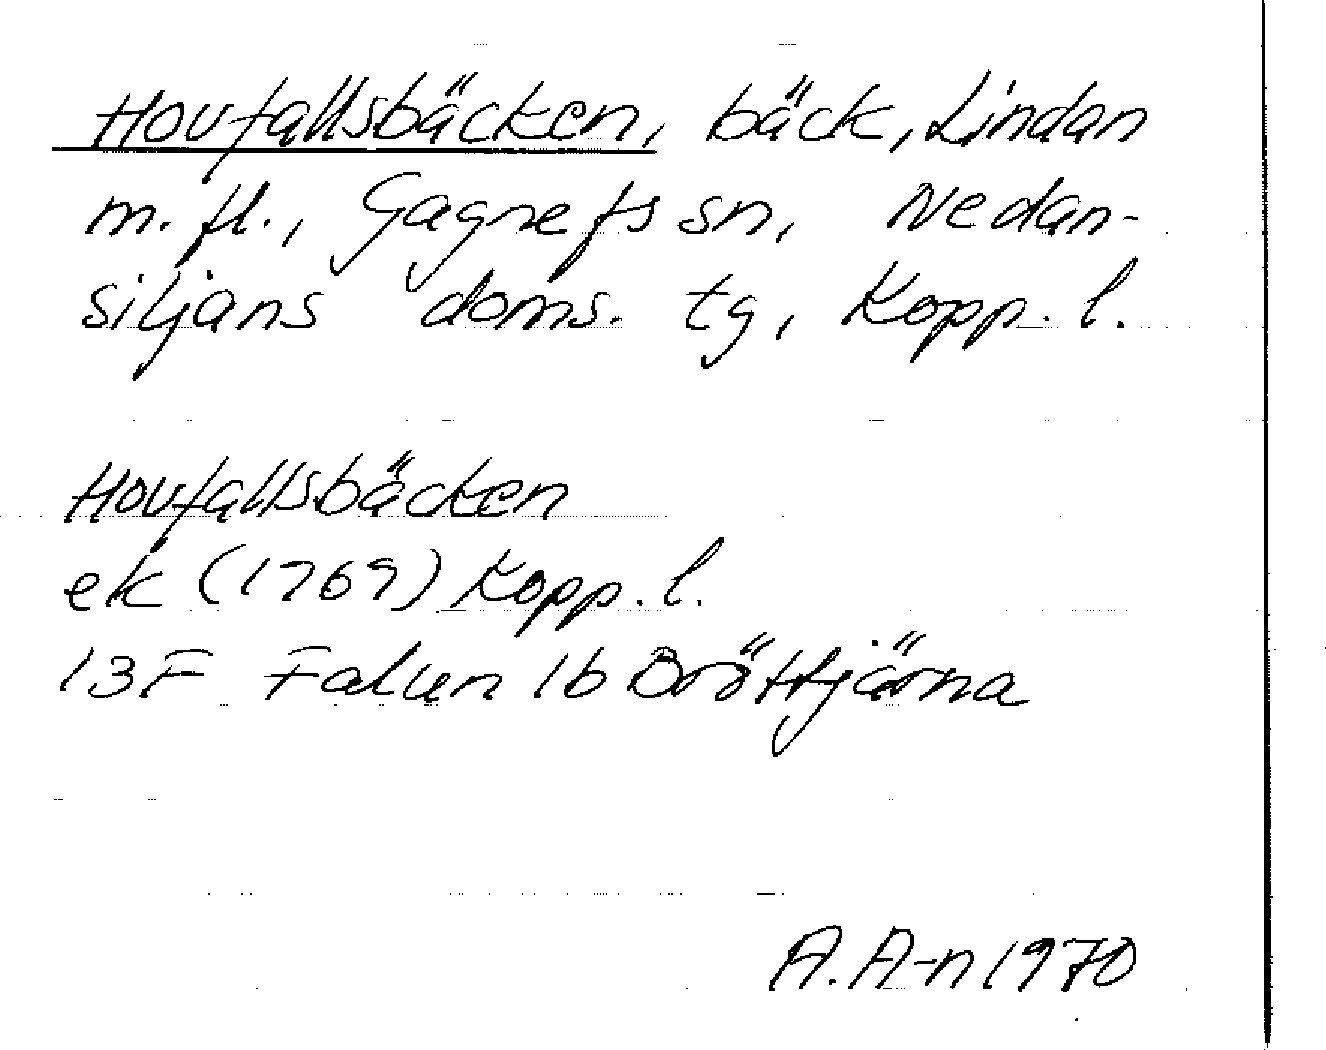 Hovfallsbäcken, bäck, Lindan
m. fl., Gagnefs sn, Nedan-
siljans doms. tg, Kopp. l.
Hovfallsbäcken
ek (1769) Kopp. l.
13F Falun 1b Bröttjärna
A. A-n 1970